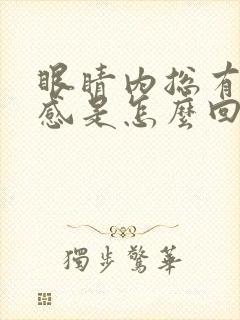 眼睛内总有
感是怎麼回
獨步驚華